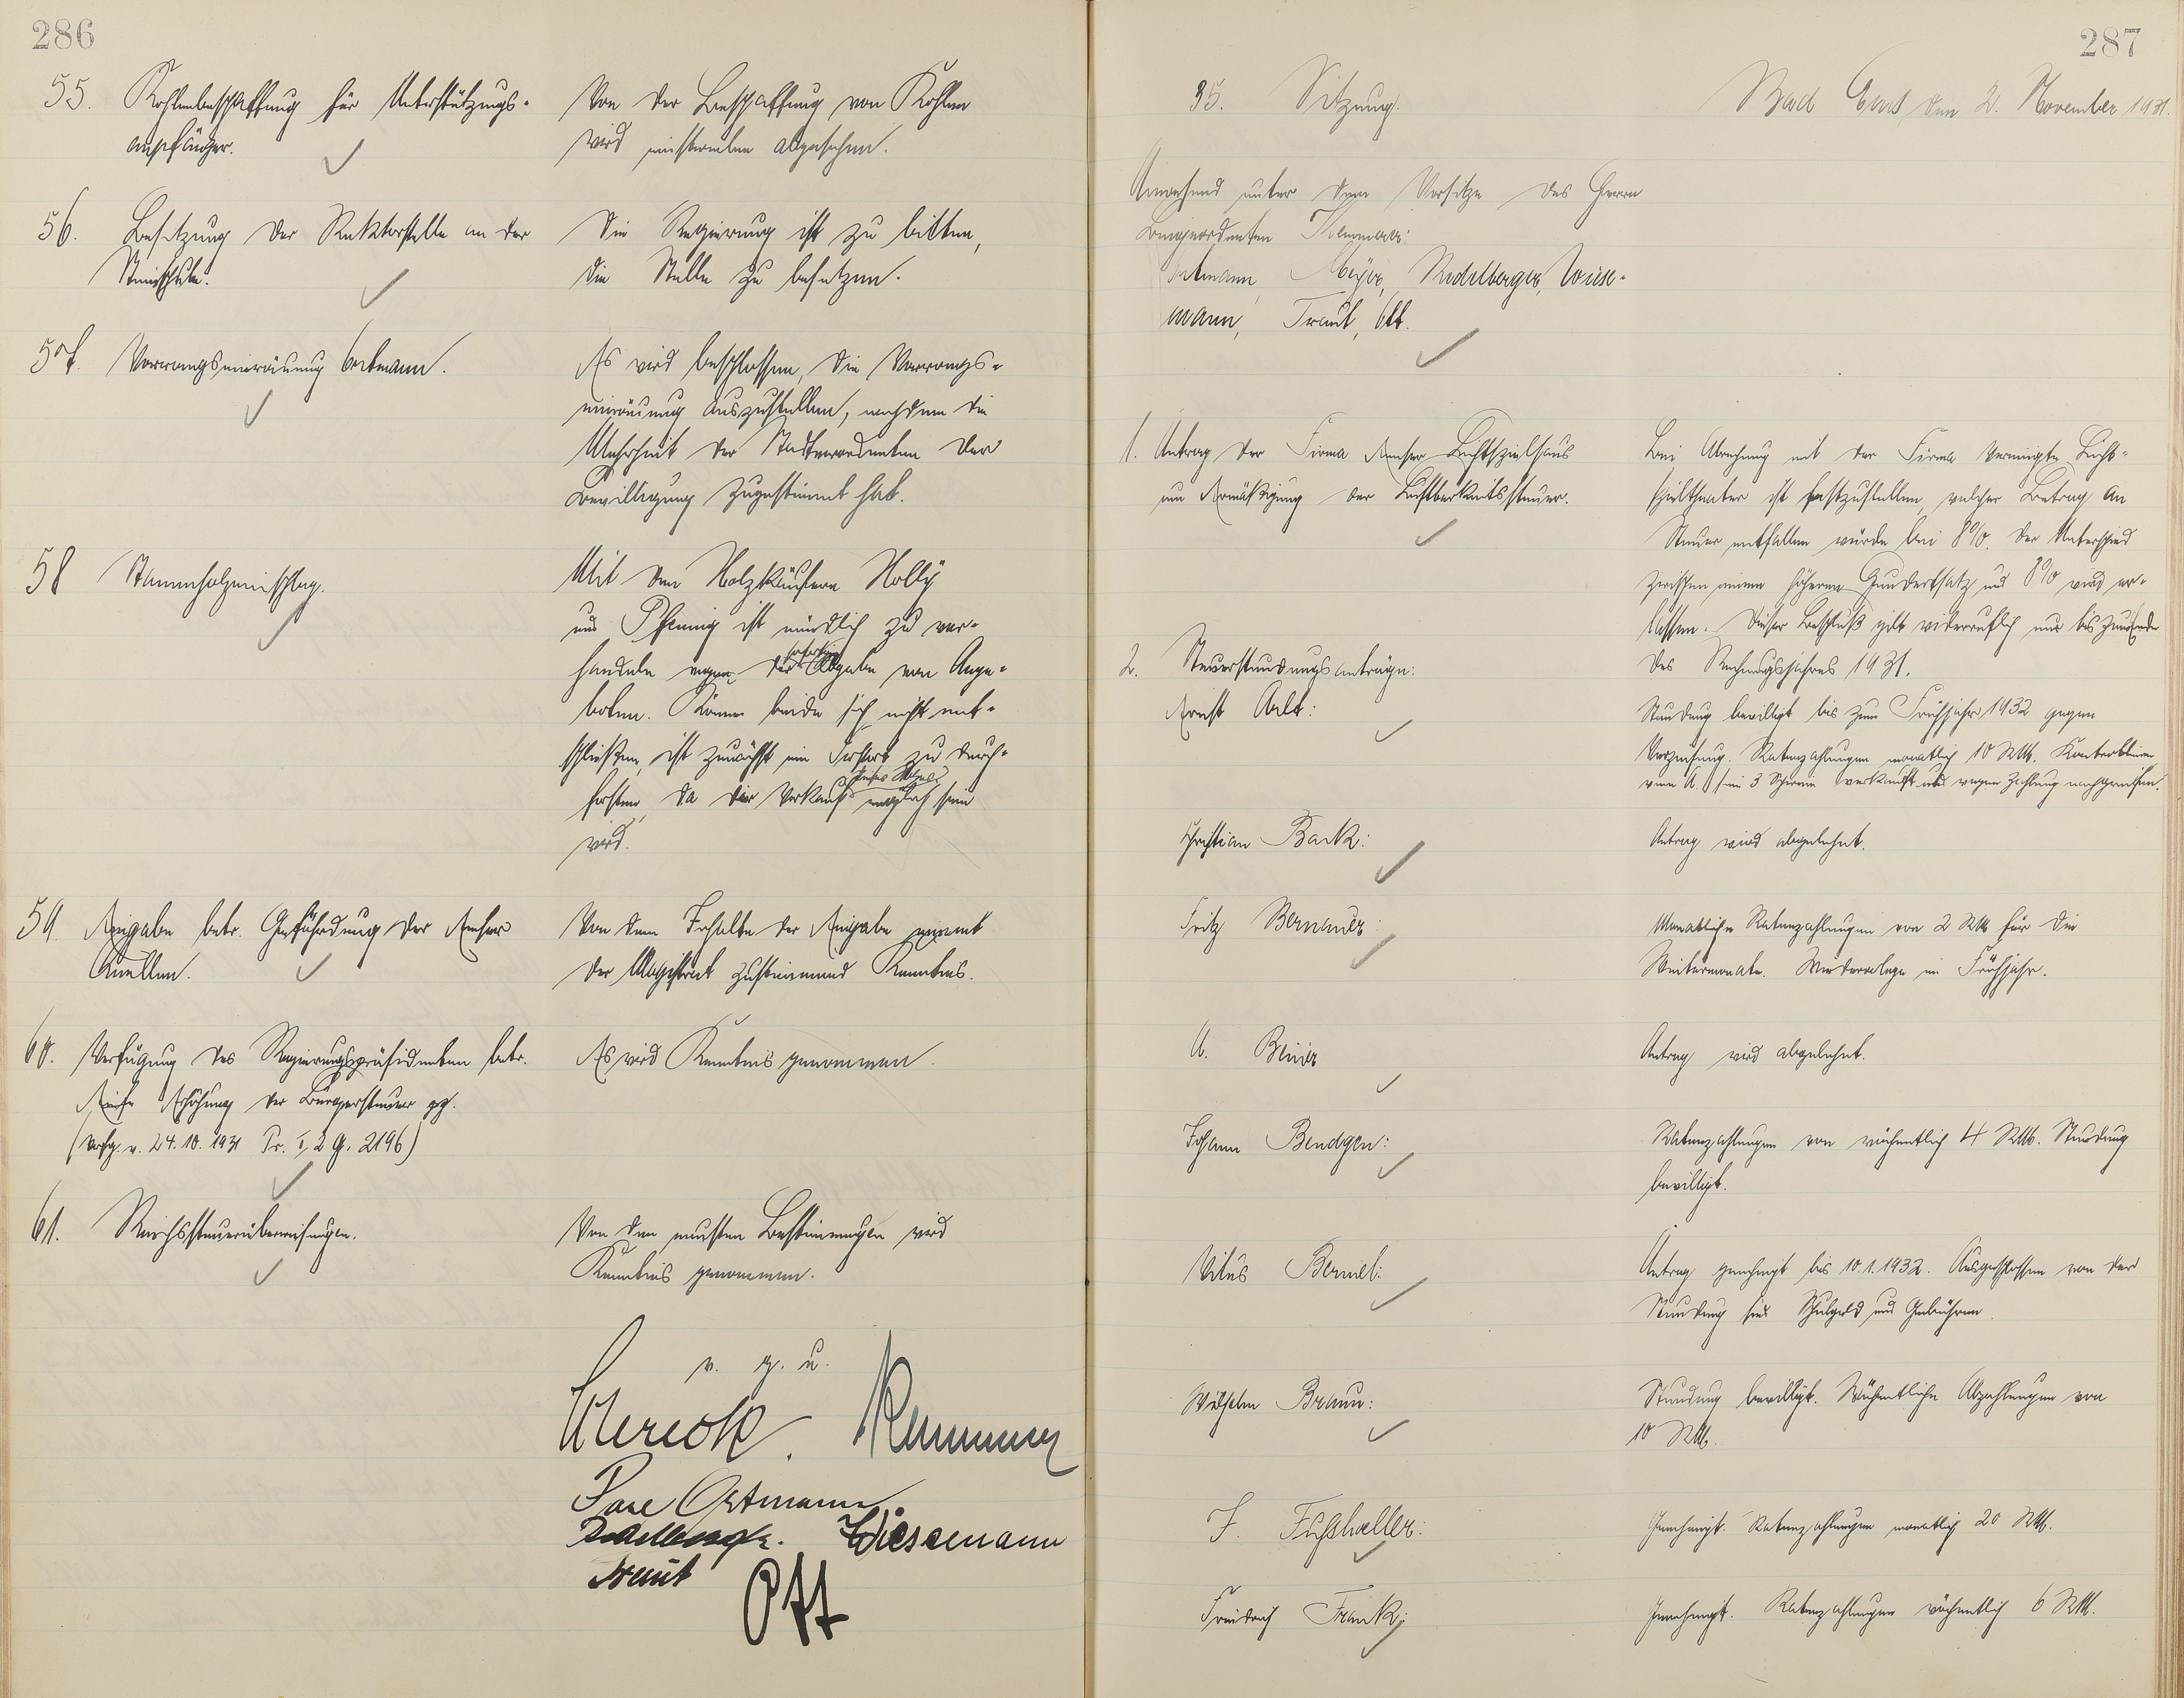 286
55. Kohlenbeschaffung für Unterstützungs-
empfänger.
Von der Beschaffung von Kohlen
wird einstweilen abgesehen.
56. Besetzung der Rektorstelle an der
Steinschule.
Die Regierung ist zu bitten,
die Stelle zu besetzen.
57. Vorrangseinräumung Ortmann.
Es wird beschlossen, die Vorrangs-
einräumung auszustellen, nachdem die
Mehrheit der Stadtverordneten der
Bewilligung zugestimmt hat.
58 Stammholzeinschlag.
Mit den Holzkäufern Holly
und Pfennig ist mündlich zu ver-
handeln wegen der sofortigen Abgabe von Ange-
boten. Können beide sich nicht ent-
schließen, ist zunächst ein Distrikt zu durch-
forsten, da der Verkauf dieses Holzes möglich sein
wird.
59. Eingabe betr. Gefährdung der Emser
Quellen.
Von dem Inhalte der Eingabe nimmt
der Magistrat zustimmend Kenntnis.
60. Verfügung des Regierungspräsidenten betr.
Erhöhung der Bürgersteuer pp.
(Verfg. v. 24.10.1931 Pr. I, 2 G. 2196)
Es wird Kenntnis genommen.
61. Reichssteuerüberweisungen.
Von den neusten Bestimmungen wird
Kenntnis genommen.
v. g. u.
Ortmann
Wiesemann
Traut
Ott
287
35. Sitzung.
Bad Ems, den 2. November 1931.
Anwesend unter dem Vorsitze des Herrn
Beigeordneten
Ortmann, Meyer, Redelberger, Wiese-
mann, Traut, Ott.
1. Antrag der Firma Emser Lichtspielhaus
um Ermäßigung der Lustbarkeitssteuer.
Bei Abrechnung mit der Firma Vereinigte Licht-
spieltheater ist festzustellen, welcher Betrag an
Steuer entfallen würde bei 8%. Der Unterschied
zwischen einem höheren Hundertsatz und 8% wird er-
lassen. Dieser Beschluß gilt widerruflich nur bis zum Ende
des Rechnungsjahres 1931.
2. Steuerstundungsanträge:
Ernst Arlt:
Stundung bewilligt bis zum Frühjahr 1932 gegen
Verzinsung. Ratenzahlungen monatlich 10 RM. Kontrollieren
wenn A. seine 3 Schweine verkauft und wegen Zahlung nachgreifen.
Christian Bark:
Antrag wird abgelehnt.
Fritz Bernauer:
Monatliche Ratenzahlungen von 2 RM für die
Wintermonate. Wiedervorlage im Frühjahr.
A. Beuer
Antrag wird abgelehnt.
Johann Bendgen:
Ratenzahlungen von wöchentlich 4 RM. Stundung
bewilligt.
Vitus Bermel:
Antrag genehmigt bis 10.1.1932. Ausgeschlossen von der
Stundung sind Schulgeld und Gebühren.
Wilhelm Braun:
Stundung bewilligt. Wöchentliche Abzahlungen von
10 RM.
J. Fußhoeller:
Genehmigt. Ratenzahlungen monatlich 20 RM.
Friedrich Frank:
Genehmigt. Ratenzahlungen wöchentlich 6 RM.